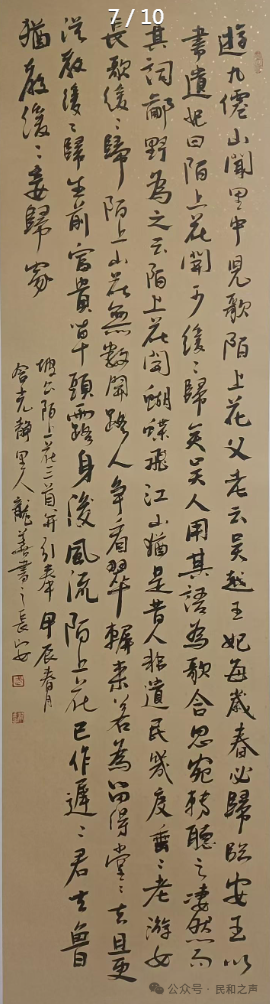 7 / 10
遊九僊山聞里中兒歌陌上花父老云吴越王妃每歲春必歸臨安王以
書遺妃曰陌上花開可緩々歸矣吴人用其語為歌含思宛轉聽之凄然而
其詞鄙野為之云陌上花開蝴蝶飛江山猶是昔人非遺民幾度垂々老游女
長歌緩々歸陌上山花無數開路人争看翠軿来若為留得堂々去且更
從教緩々歸生前富貴草頭露身後風流陌上花已作遲々君去魯
猶教緩々妾歸家
坡公陌上花三首并引 甲辰春月
里人龍善書之長安
公众号·民和之声